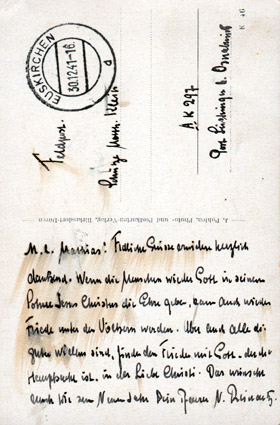 EUSKIRCHEN
30.12.41-16
d
Feldpost.
A K 297
K 46
J. Pohlen, Photo- und Postkarten-Verlag, Birkesdorf-Düren
M. l. Mathias! Festliche Grüsse erwidern herzlich
dankend. Wenn die Menschen wieder Gott in seinem
Sohne Jesus Christus die Ehre geben, kann auch wieder
Friede unter den Völkern werden. Aber auch alle die
guten Willens sind, finden den Frieden mit Gott, der die
Hauptsache ist, in der Liebe Christi. Das wünscht
auch Dir zum Neuen Jahre Dein Pfarrer N.